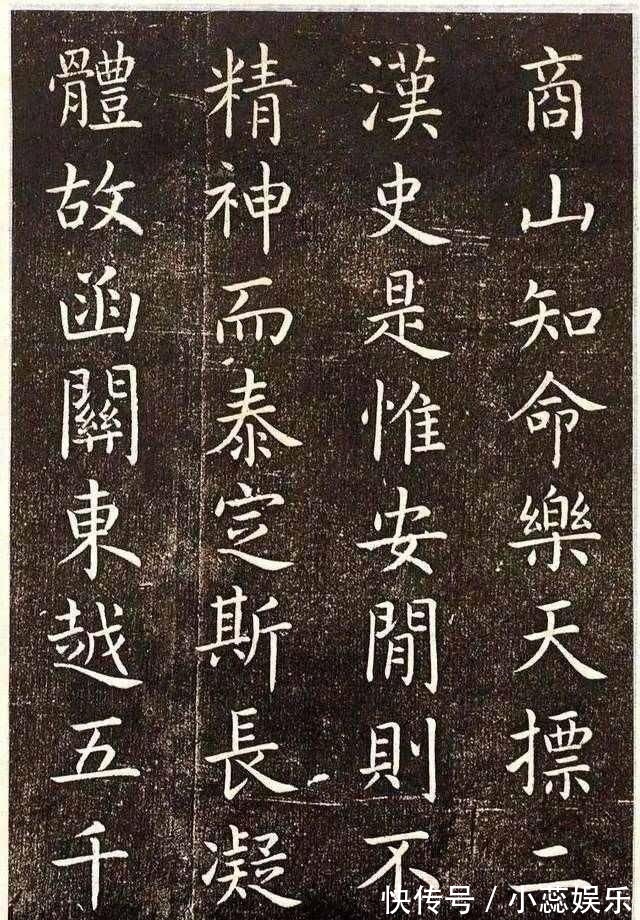 商山知命樂天摽二
漢史是惟安閒則不
精神而泰定斯長凝
體故函關東越五千
快传号／小蕊娱乐